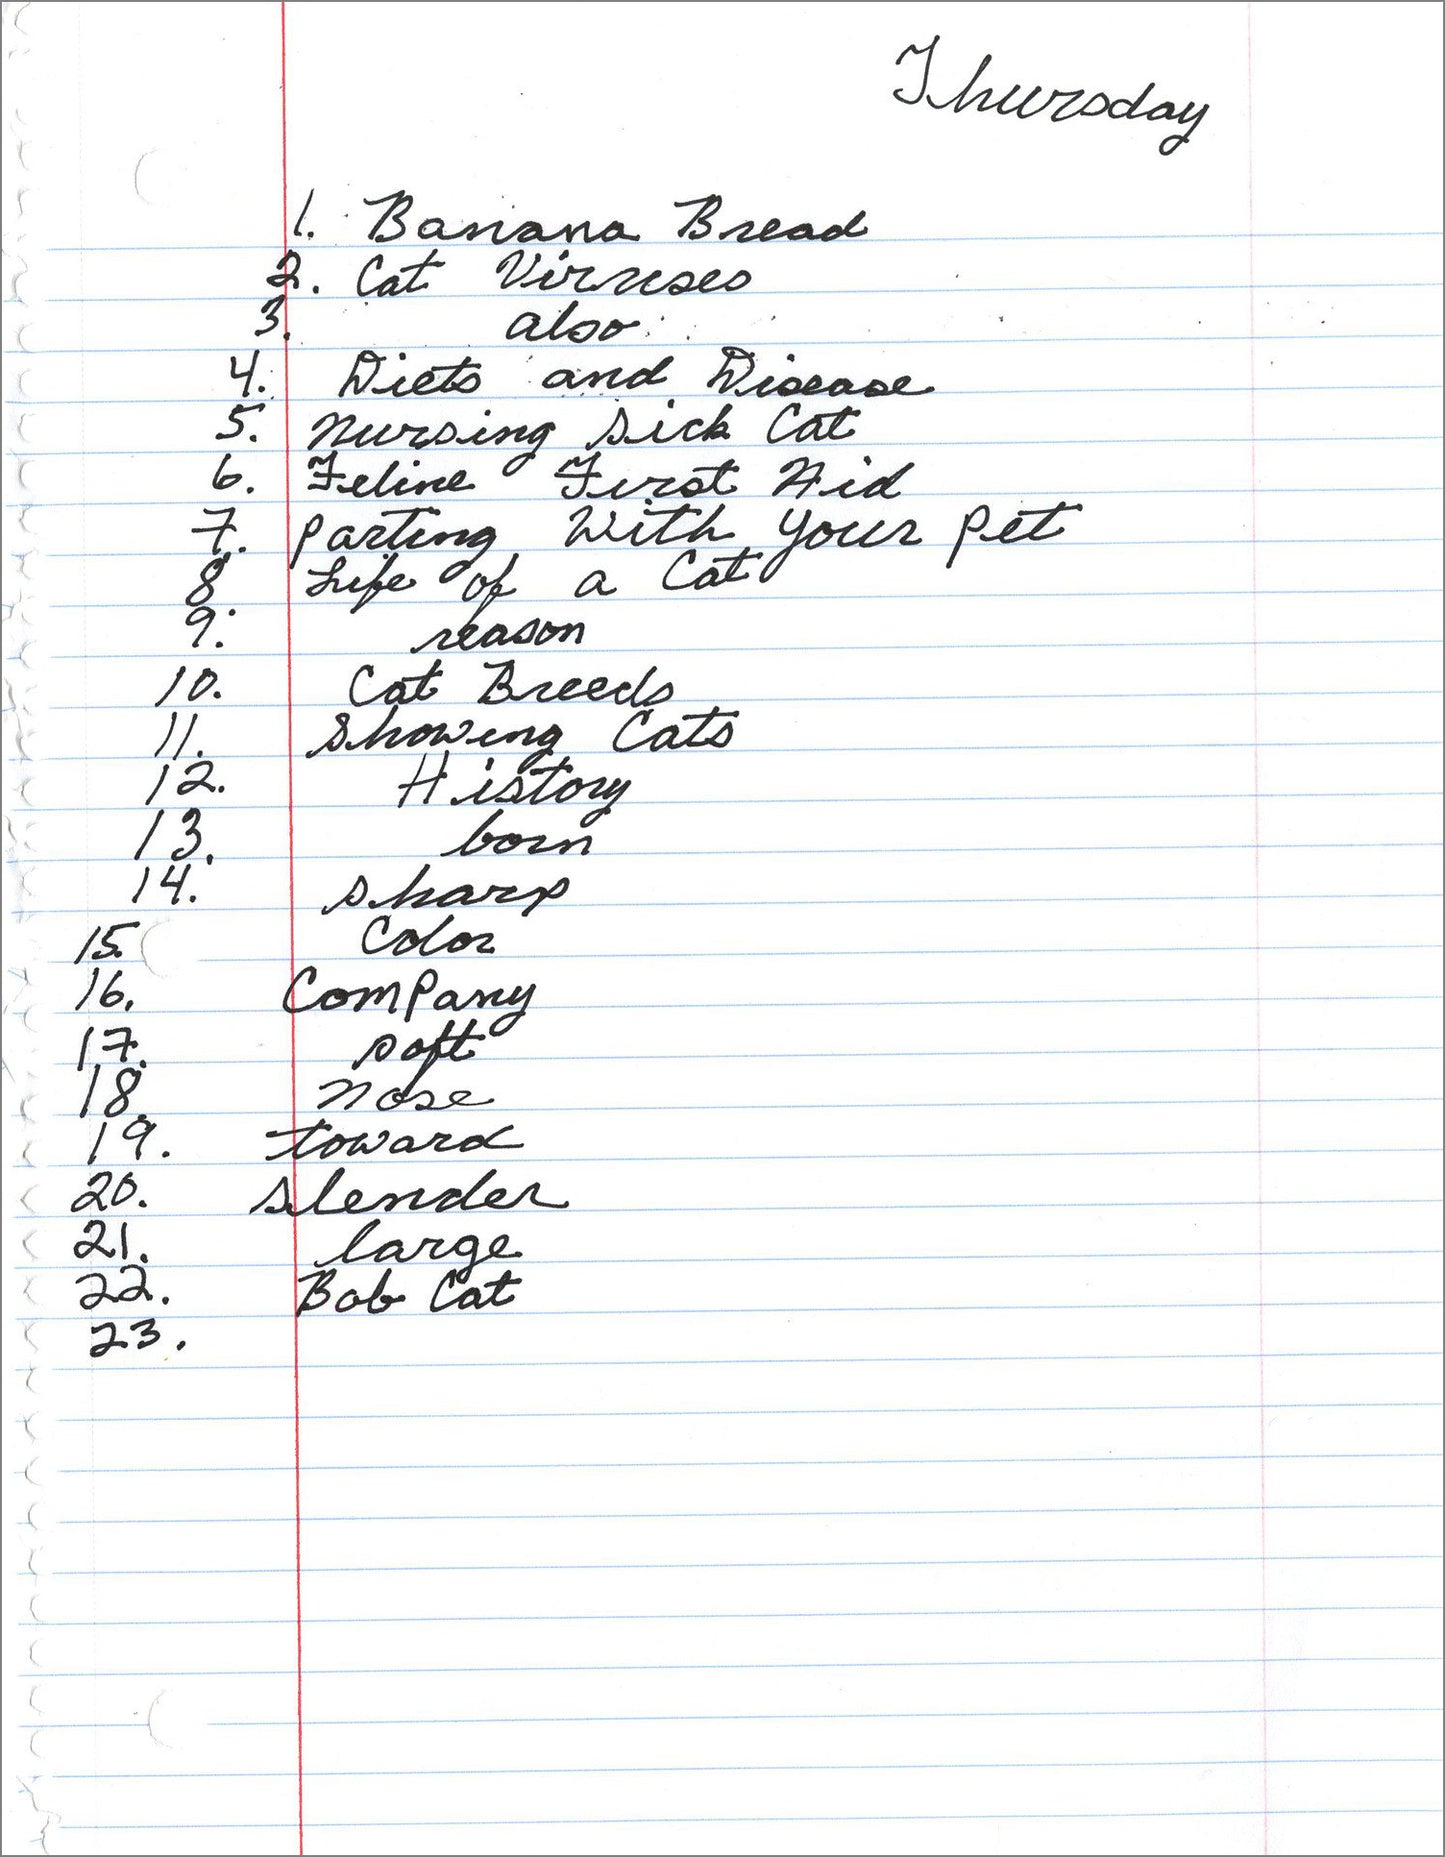 Thursday
1. Banana Bread
2. Cat Viruses
3. also
4. Diets and Disease
5. Nursing Sick Cat
6. Feline First Aid
7. Parting With Your Pet
8 Life of a Cat
9. reason
10. Cat Breeds
11. Showing Cats
12. History
13. born
14. sharp
15. Color
16. Company
17. soft
18. Nose
19. toward
20. slender
21. large
22. Bob Cat
23.